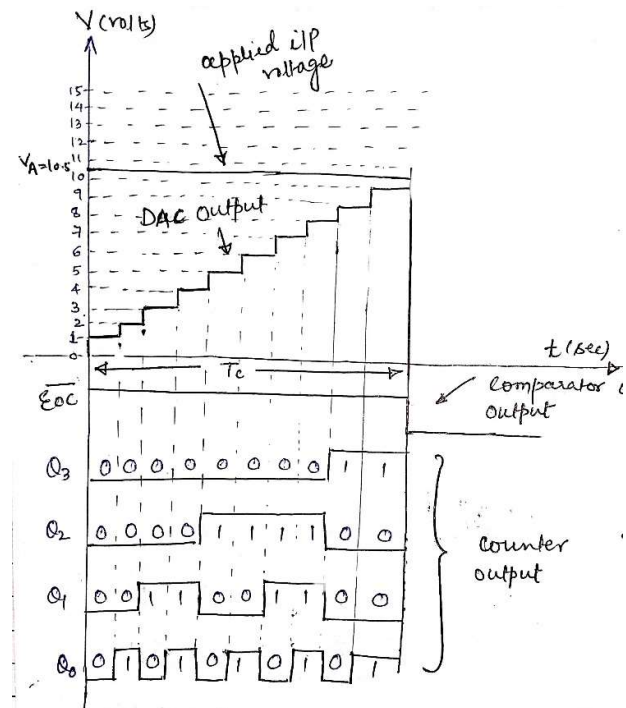 V(volts)
applied i/p
voltage
15
14
13
12
11
VA=10.5
10
9
8
7
6
5
4
3
2
1
0
DAC output
t(sec)
Tc
EOC
comparator
output
Q3 0 0 0 0 0 0 0 0 1 1
Q2 0 0 0 0 1 1 1 1 0 0
Q1 0 0 1 1 0 0 1 1 0 0
Q0 0 1 0 1 0 1 0 1 0 1
counter
output